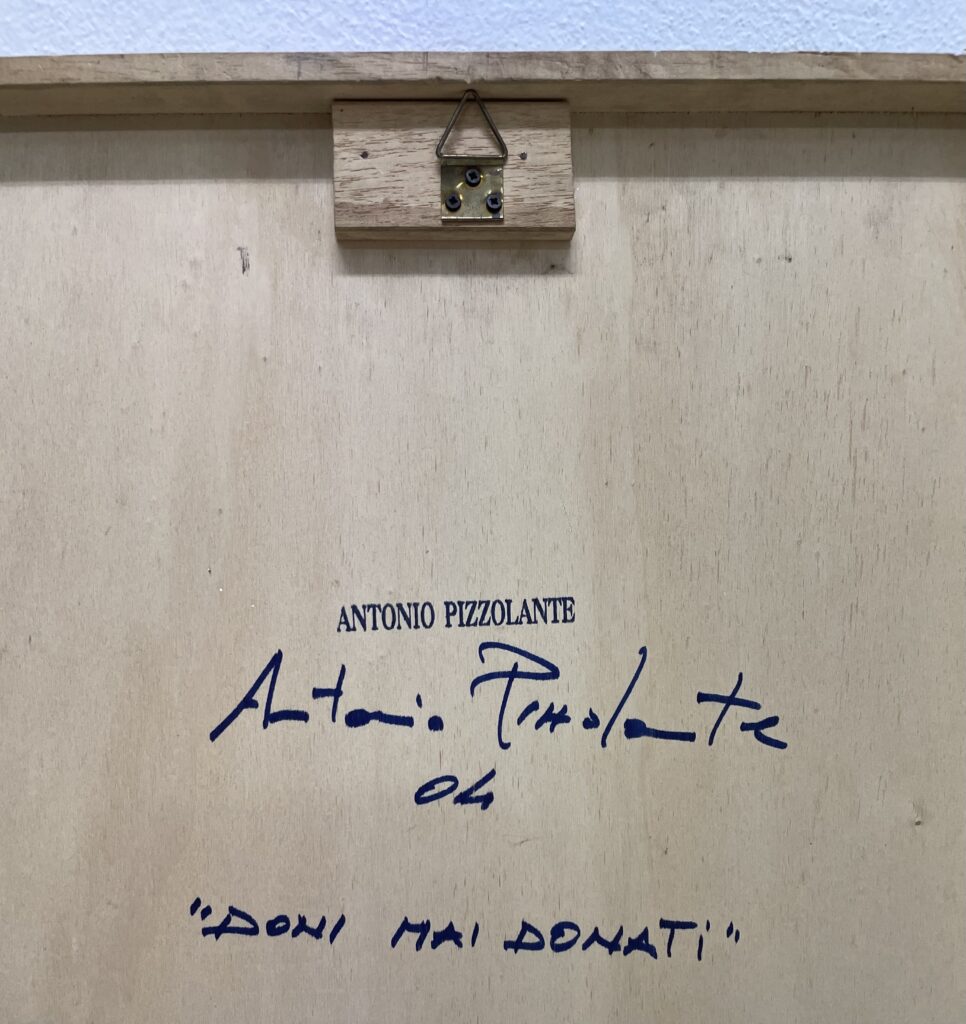 ANTONIO PIZZOLANTE
Antonio Pizzolante
04
"DONI MAI DONATi"